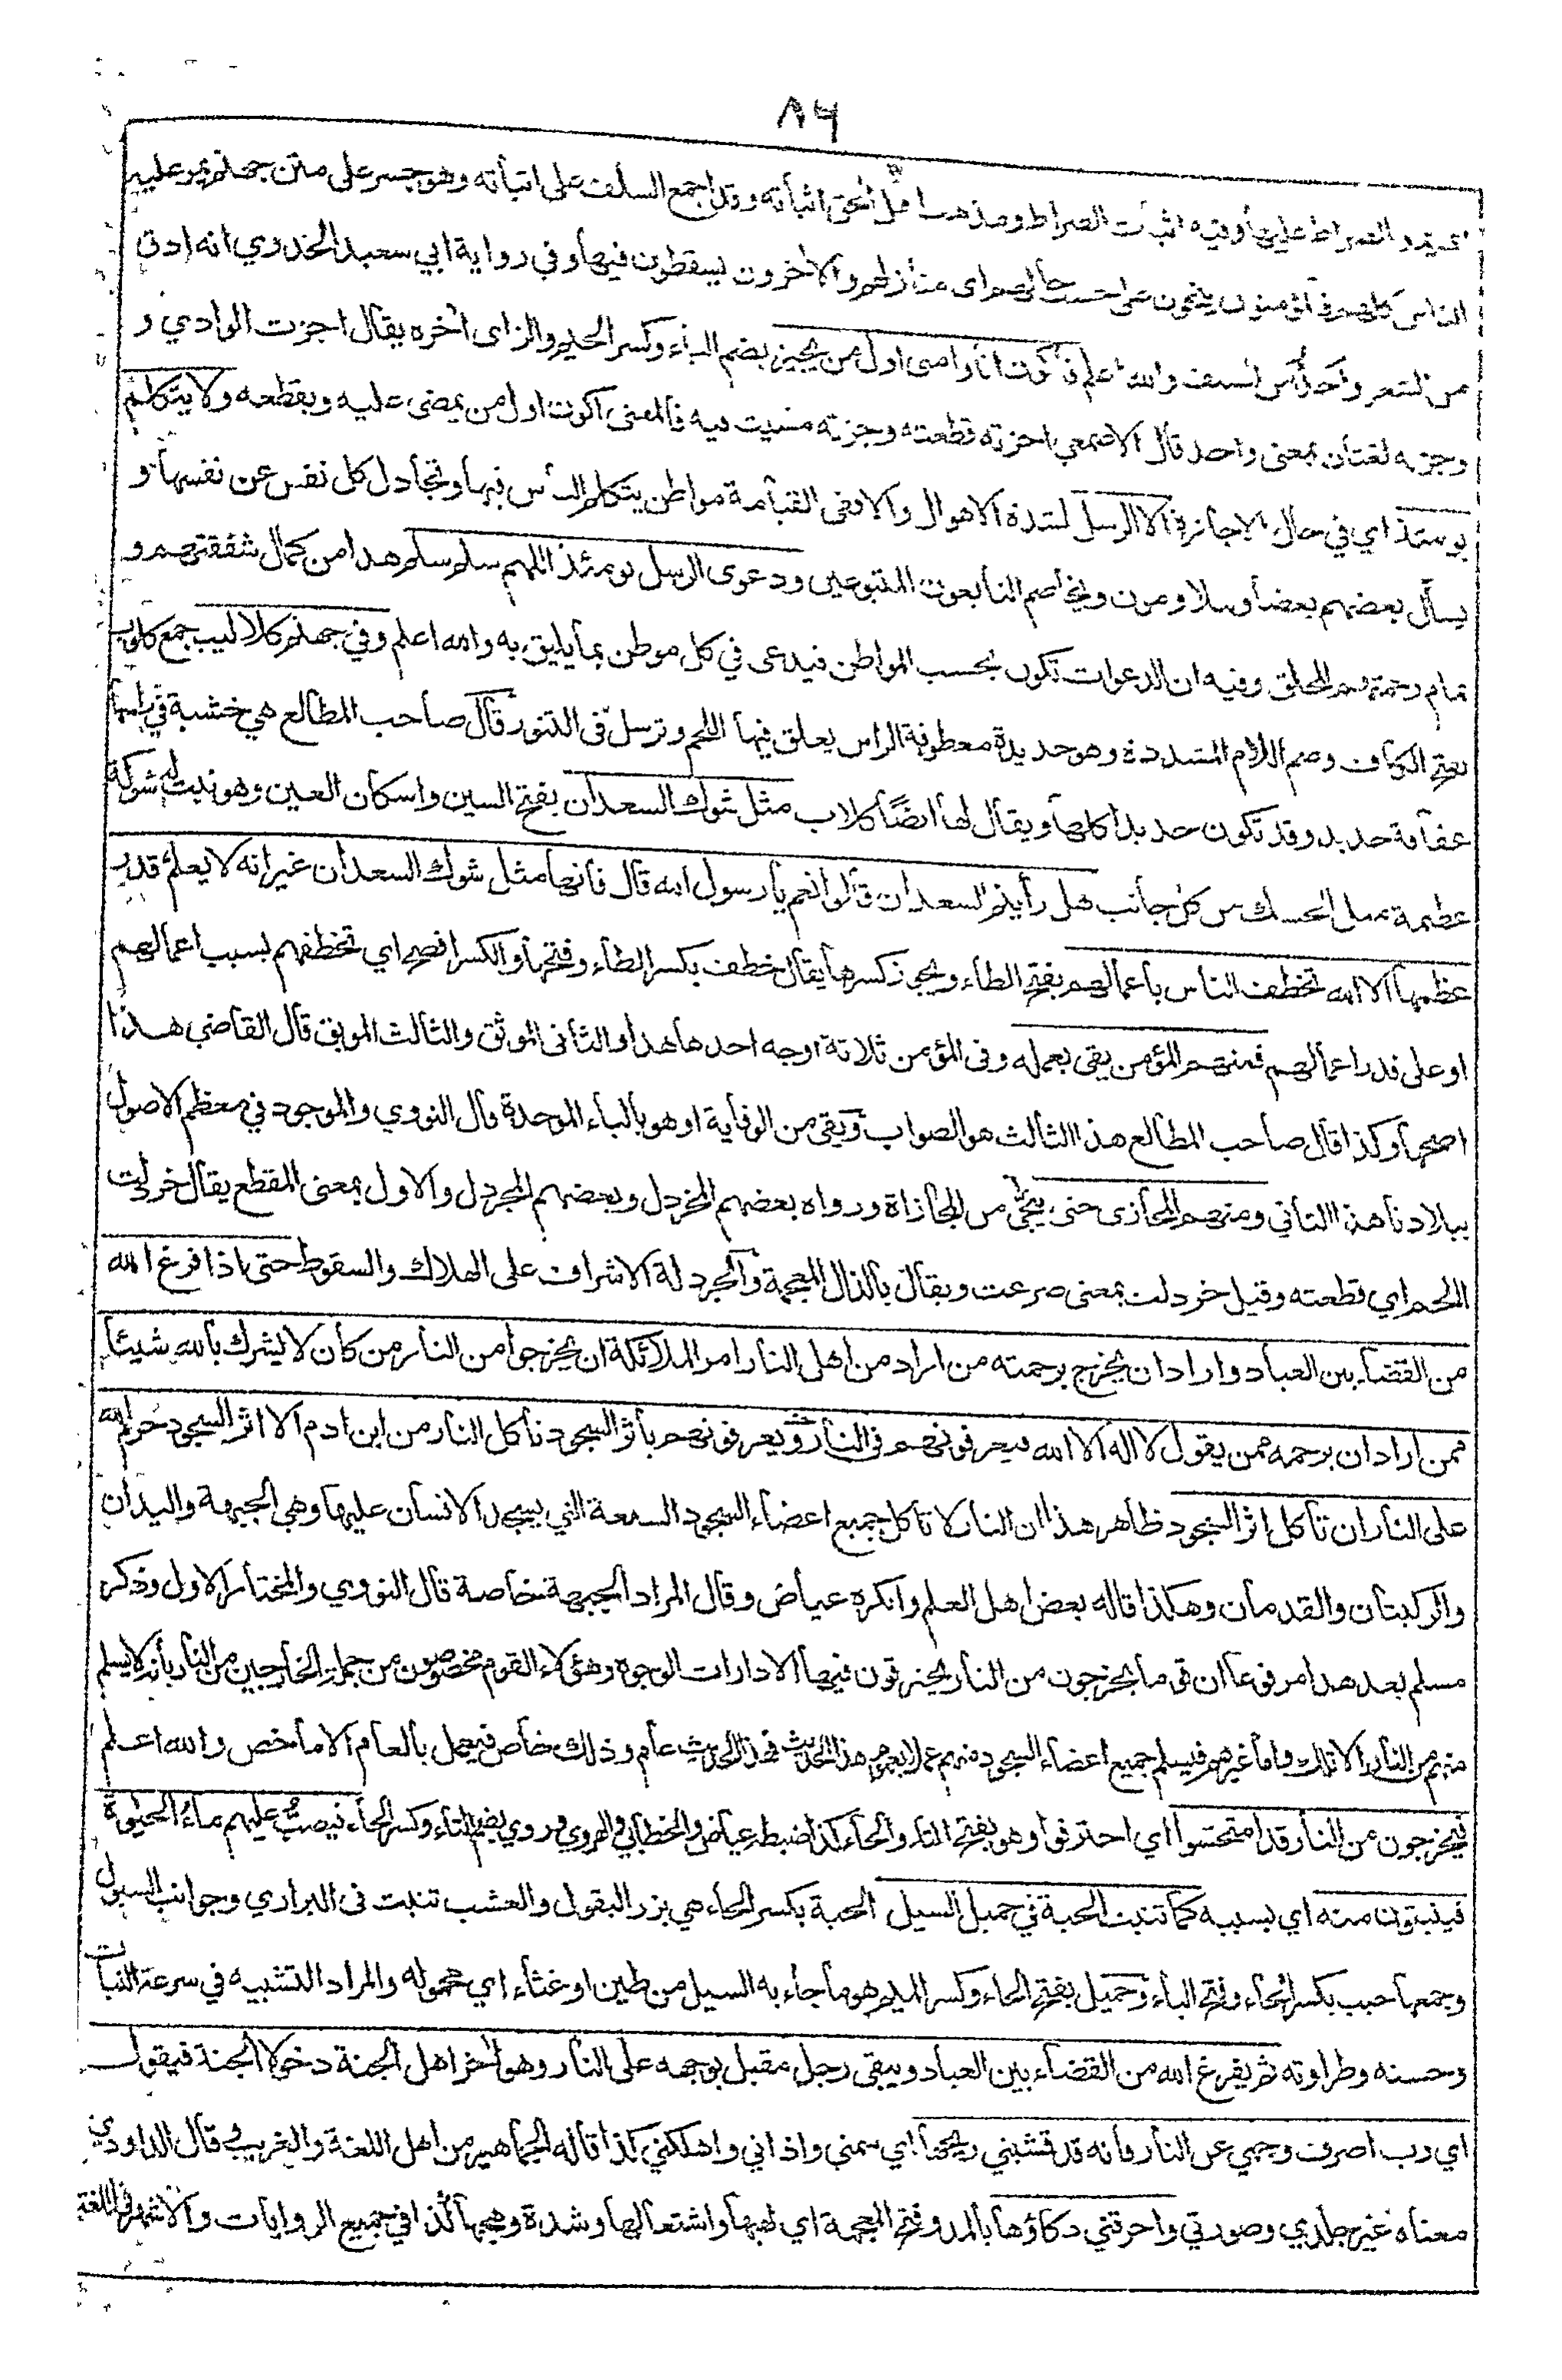 ٨٦
الصراط عليها وفيه اثبات الصراط ومذهب اهل الحق اثباته وقد اجمع السلف على اثباته وهو جسر على متن جهنم يمر عليه
الناس كلهم فالمؤمنون ينجون على حسب حالهم اى منازلهم والآخرون يسقطون فيها وفي رواية ابي سعيد الخدري انه ادق
من الشعر واحد من السيف والله اعلم فاكون انا وامتى اول من يجيز بضم الياء وكسر الجيم والزاى آخره يقال اجزت الوادي و
وجزته لغتان بمعنى واحد قال الاصمعي اجزته قطعته وجزته مشيت فيه فالمعنى اكون اول من يمضى عليه ويقطعه ولا يتكلم
يومئذ اي في حال الاجازة الا الرسل لشدة الاهوال والا ففى القيامة مواطن يتكلم الناس فيها وتجادل كل نفس عن نفسها و
يسأل بعضهم بعضا ويتلاومون ويخاصم التابعون المتبوعين ودعوى الرسل يومئذ اللهم سلم سلم هذا من كمال شفقتهم و
تمام رحمتهم للخلق وفيه ان الدعوات تكون بحسب المواطن فيدعى في كل موطن بما يليق به والله اعلم وفي جهنم كلاليب جمع كلوب
بفتح الكاف وضم اللام المشددة وهو حديدة معطوفة الراس يعلق فيها اللحم وترسل فى التنور قال صاحب المطالع هي خشبة في راسها
عقافة حديد وقد تكون حديدا كلها ويقال لها ايضًا كلاب مثل شوك السعدان بفتح السين واسكان العين وهو نبت له شوكة
عظيمة مثل الحسك من كل جانب هل رأيتم السعدان قالوا نعم يا رسول الله قال فانها مثل شوك السعدان غير انه لا يعلم قدر
عظمها الا الله تخطف الناس باعمالهم بفتح الطاء ويجوز كسرها يقال خطف بكسر الطاء وفتحها والكسر افصح اي تخطفهم بسبب اعمالهم
او على قدر اعمالهم فمنهم المؤمن يقى بعمله وفى المؤمن ثلاثة اوجه احدها هذا والثانى الموثق والثالث الموبق قال القاضي هذا
اصحها وكذا قال صاحب المطالع هذا الثالث هو الصواب ويقى من الوقاية او هو بالباء الموحدة قال النووي والموجود في معظم الاصول
ببلادنا هذا الثاني ومنهم المجازى حتى ينجّى من المجازاة ورواه بعضهم المخردل وبعضهم المجردل والاول بمعنى المقطع يقال خردلت
اللحم اي قطعته وقيل خردلت بمعنى صرعت ويقال بالذال المعجمة والجردلة الاشراف على الهلاك والسقوط حتى اذا فرغ الله
من القضاء بين العباد واراد ان يخرج برحمته من اراد من اهل النار امر الملائكة ان يخرجوا من النار من كان لا يشرك بالله شيئا
ممن اراد ان يرحمه ممن يقول لا اله الا الله فيعرفونهم فى النار ويعرفونهم باثر السجود تاكل النار من ابن ادم الا اثر السجود حرم الله
على النار ان تاكل اثر السجود ظاهر هذا ان النار لا تاكل جميع اعضاء السجود السبعة التي يسجد الانسان عليها وهي الجبهة واليدان
والركبتان والقدمان وهكذا قاله بعض اهل العلم وانكره عياض وقال المراد الجبهة خاصة قال النووي والمختار الاول وذكر
مسلم بعد هذا مرفوعا ان قوما يخرجون من النار يحترقون فيها الا دارات الوجوه وهؤلاء القوم مخصوصون من جملة الخارجين من النار بأنه لا يسلم
منهم من النار الا تلك واما غيرهم فيسلم جميع اعضاء السجود منهم عملا بعموم هذا الحديث فهذا الحديث عام وذلك خاص فيعمل بالعام الا ما خص والله اعلم
فيخرجون من النار قد امتحشوا اي احترقوا وهو بفتح التاء والحاء كذا ضبطه عياض والخطابي والهروي وروي بضم التاء وكسر الحاء فيصبّ عليهم ماء الحيٰوة
فينبتون منه اي بسببه كما تنبت الحبة في حميل السيل الحبة بكسر الحاء هي بزر البقول والعشب تنبت فى البراري وجوانب السيول
وجمعها حبب بكسر الحاء وفتح الباء وحميل بفتح الحاء وكسر الميم هو ما جاء به السيل من طين او غثاء اي محموله والمراد التشبيه في سرعة النبات
وحسنه وطراوته ثم يفرغ الله من القضاء بين العباد ويبقى رجل مقبل بوجهه على النار وهو آخر اهل الجنة دخولا الجنة فيقول
اي رب اصرف وجهي عن النار فانه قد قشبني ريحها اي سمني واذاني واهلكني كذا قاله الجماهير من اهل اللغة والغريب وقال الداودي
معناه غير جلدي وصورتي واحرقني ذكاؤها بالمد وفتح المعجمة اي لهبها واشتعالها وشدة وهجها كذا في جميع الروايات والاشهر فى اللغة